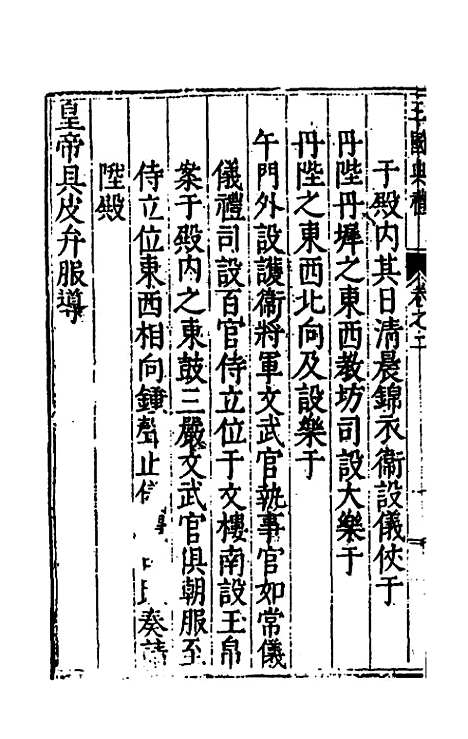 王國典禮　卷之二
于殿内其日清晨錦衣衛設儀仗于
丹陛丹墀之東西教坊司設大樂于
丹陛之東西北向及設樂于
午門外設護衛將軍文武官執事官如常儀
儀禮司設百官侍立位于文樓南設玉帛
案于殿内之東鼓三嚴文武官俱朝服至
侍立位東西相向鍾聲止奏請
陞殿
皇帝具皮弁服導